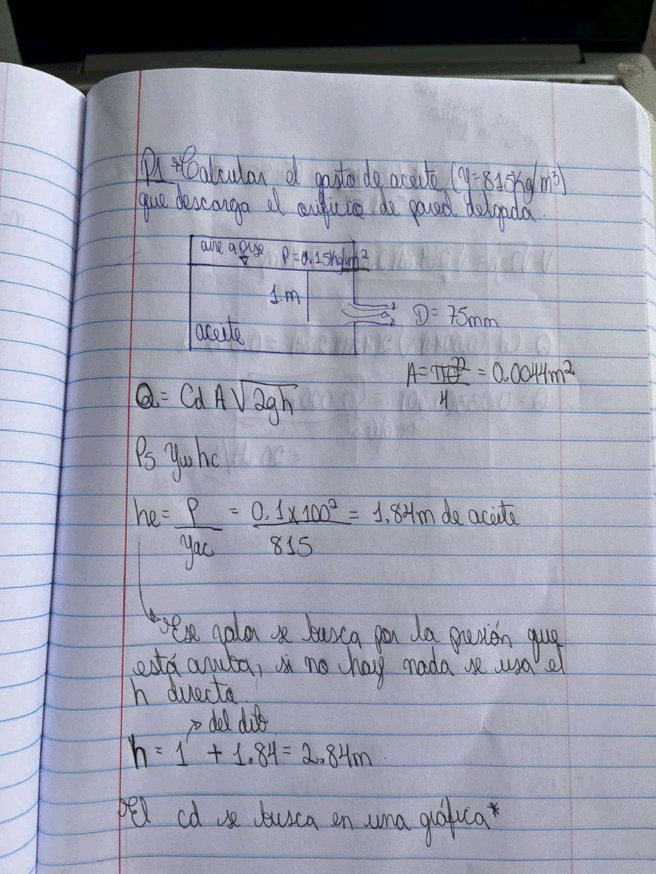 P1 *Calcular el gasto de aceite (γ=815kg/m³)
que descarga el orificio de pared delgada.
aire a pres P=0.15kg/cm²
1.m
aceite
D= 75mm
A= πD² = 0.0044m²
4
Q= Cd A√2gh
Ps γw hc
he= P = 0.1x100² = 1,84m de aceite
γac 815
Ese valor se busca por la presión que
está arriba, si no hay nada se usa el
h directo
del dib
h= 1 + 1.84= 2.84m.
*El cd se busca en una gráfica*